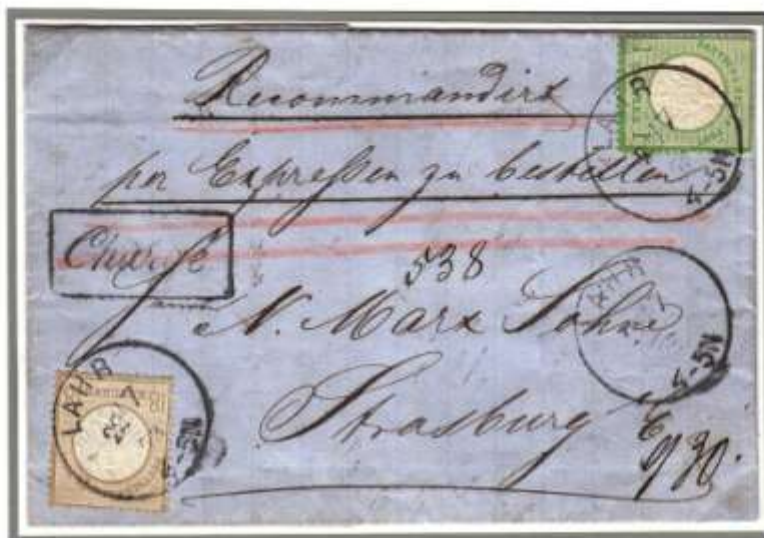 Recommandirt
per Expreßen zu bestellen
Chargé
538
N. Marx Söhne
Strasburg i/E
9 30.
LAHR
4-5N
4-5N
LAHR
22 7
4-5N
18